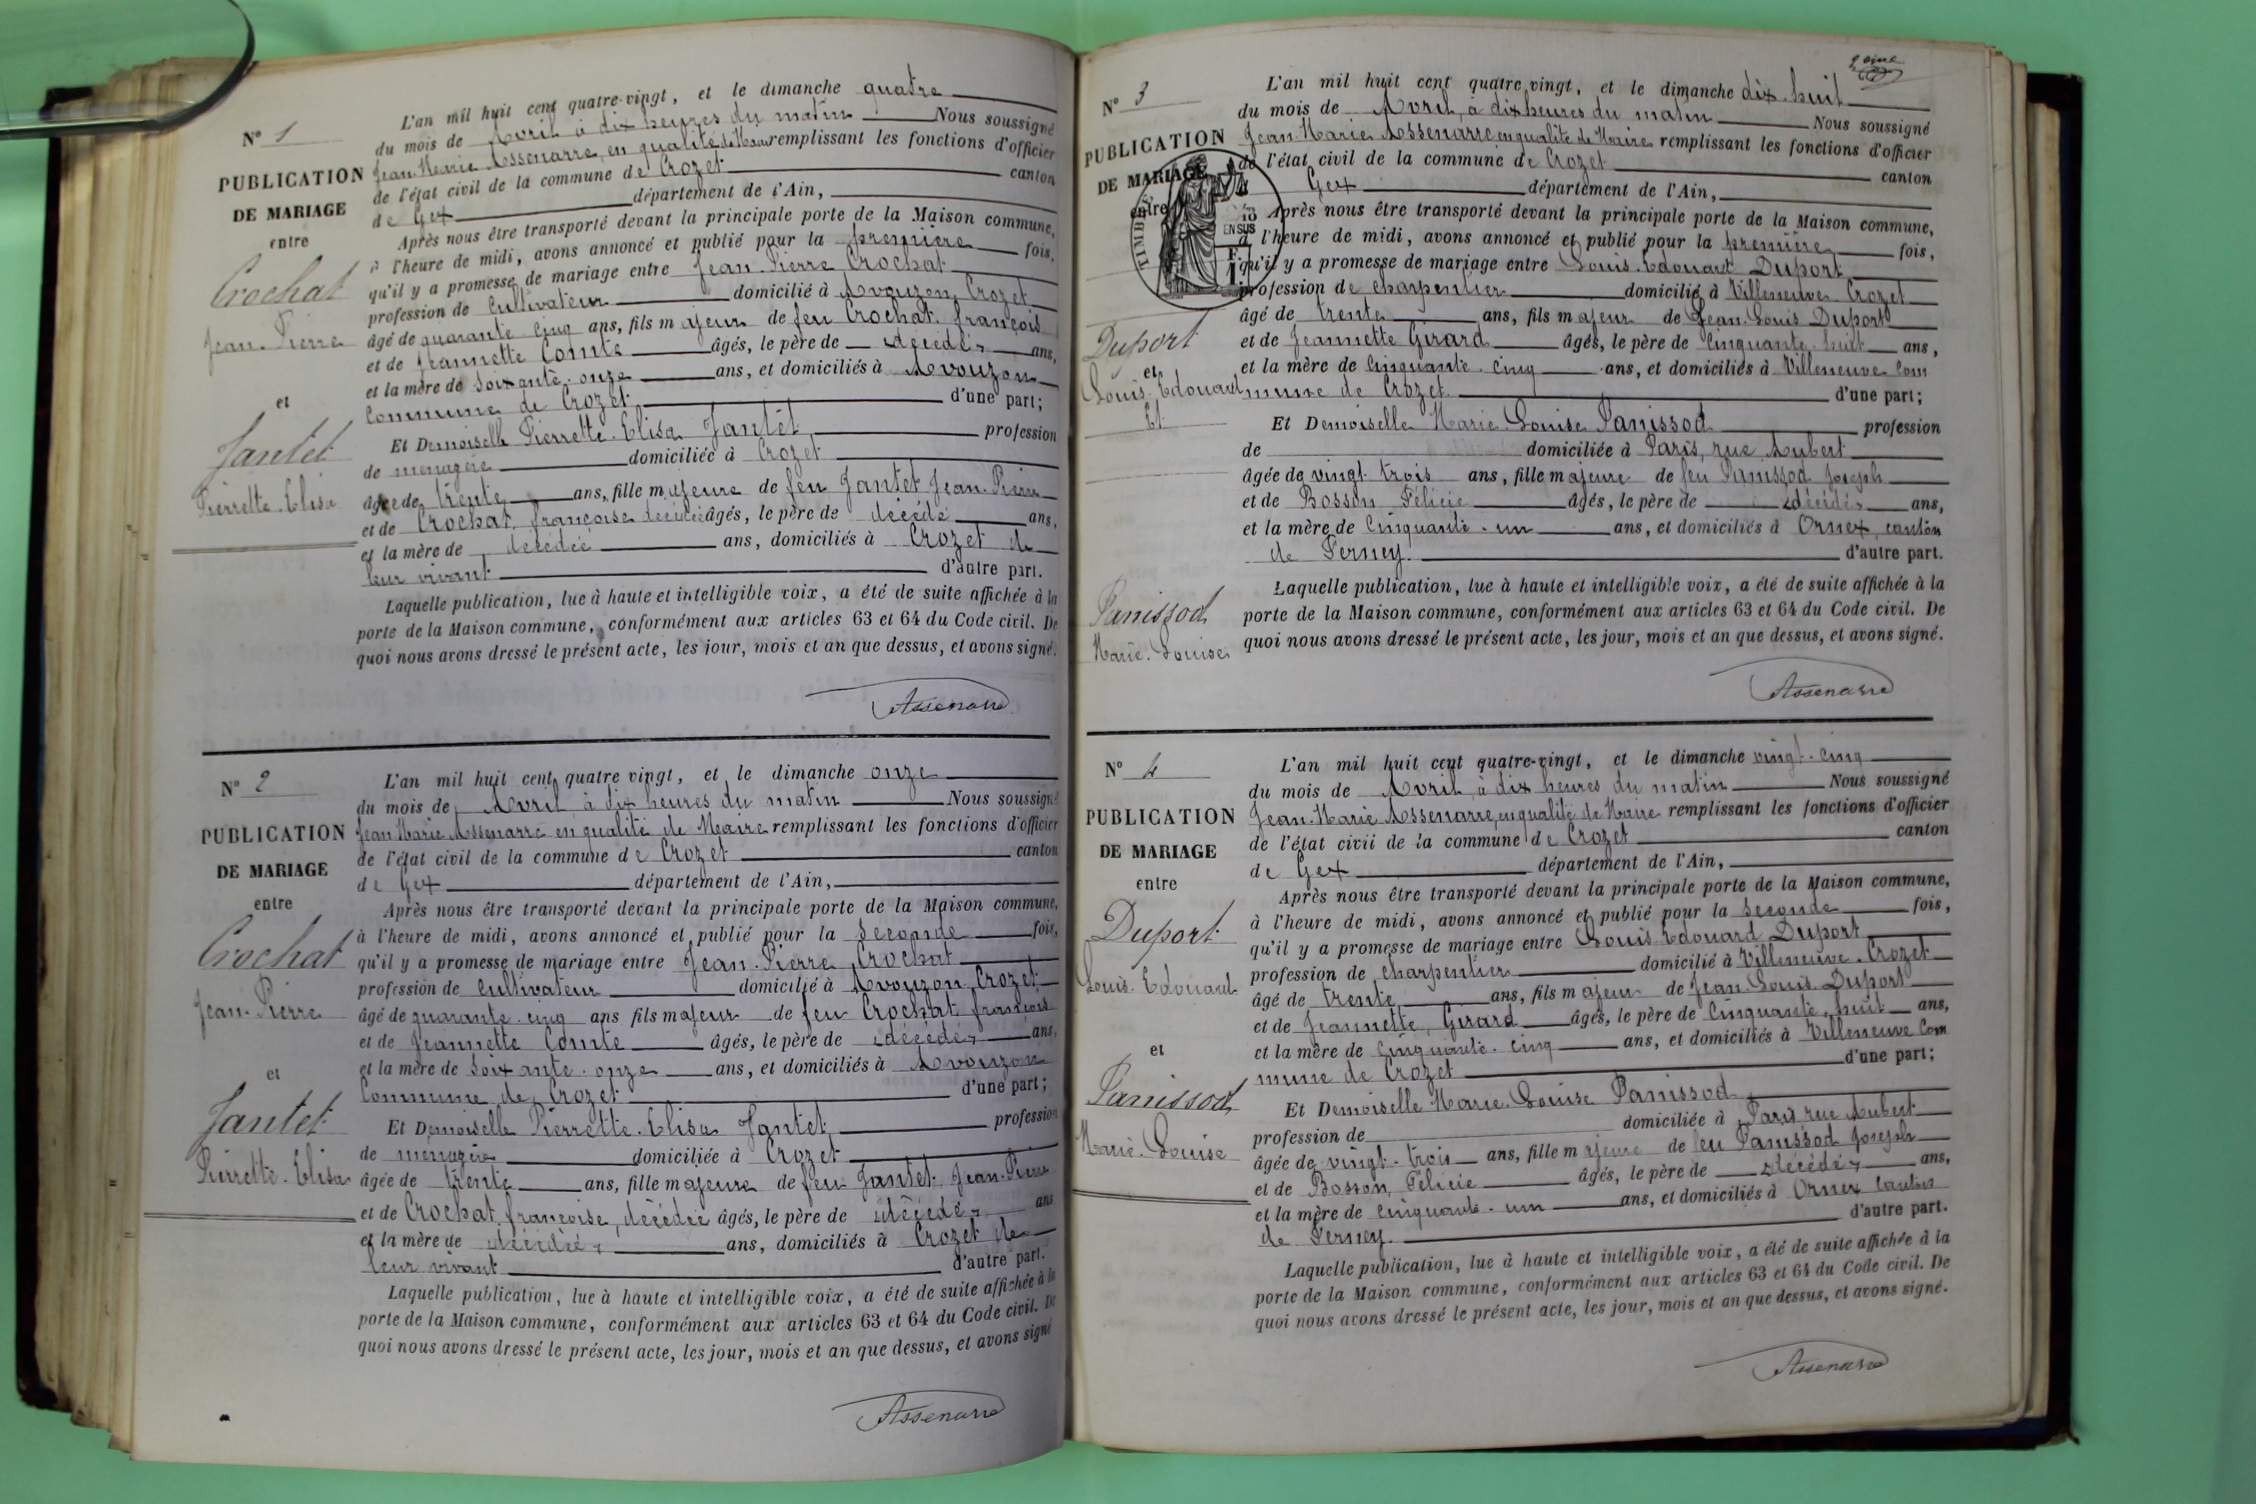 N° 1
PUBLICATION
DE MARIAGE
entre
Crochat
Jean-Pierre
et
Jantet
Pierrette-Elisa
L'an mil huit cent quatre-vingt, et le dimanche quatre
du mois de Avril à dix heures du matin Nous soussigné
Jean-Marie Assenarre, en qualité de Maire remplissant les fonctions d'officier
de l'état civil de la commune de Crozet canton
de Gex département de l'Ain,
Après nous être transporté devant la principale porte de la Maison commune,
à l'heure de midi, avons annoncé et publié pour la première fois,
qu'il y a promesse de mariage entre Jean-Pierre Crochat
profession de Cultivateur domicilié à Avouzon, Crozet
âgé de quarante cinq ans, fils majeur de feu Crochat François
et de Jeannette Comte âgés, le père de décédé ans,
et la mère de soixante-onze ans, et domiciliés à Avouzon
Commune de Crozet d'une part;
Et Demoiselle Pierrette-Elisa Jantet profession
de ménagère domiciliée à Crozet
âgée de trente ans, fille majeure de feu Jantet Jean-Pierre
et de Crochat, françoise décédée âgés, le père de décédé ans,
et la mère de décédée ans, domiciliés à Crozet de
leur vivant d'autre part.
Laquelle publication, lue à haute et intelligible voix, a été de suite affichée à la
porte de la Maison commune, conformément aux articles 63 et 64 du Code civil. De
quoi nous avons dressé le présent acte, les jour, mois et an que dessus, et avons signé.
Assenarre
N° 2
PUBLICATION
DE MARIAGE
entre
Crochat
Jean-Pierre
et
Jantet
Pierrette-Elisa
L'an mil huit cent quatre vingt, et le dimanche onze
du mois de Avril à dix heures du matin Nous soussigné
Jean-Marie Assenarre en qualité de Maire remplissant les fonctions d'officier
de l'état civil de la commune de Crozet canton
de Gex département de l'Ain,
Après nous être transporté devant la principale porte de la Maison commune,
à l'heure de midi, avons annoncé et publié pour la seconde fois,
qu'il y a promesse de mariage entre Jean-Pierre Crochat
profession de Cultivateur domicilié à Avouzon, Crozet
âgé de quarante-cinq ans fils majeur de feu Crochat françois
et de Jeannette Comte âgés, le père de décédé ans,
et la mère de soixante-onze ans, et domiciliés à Avouzon
Commune de Crozet d'une part;
Et Demoiselle Pierrette-Elisa Jantet profession
de ménagère domiciliée à Crozet
âgée de trente ans, fille majeure de feu Jantet Jean-Pierre
et de Crochat, françoise, décédée âgés, le père de décédé ans
et la mère de décédée ans, domiciliés à Crozet de
leur vivant d'autre part.
Laquelle publication, lue à haute et intelligible voix, a été de suite affichée à la
porte de la Maison commune, conformément aux articles 63 et 64 du Code civil. De
quoi nous avons dressé le présent acte, les jour, mois et an que dessus, et avons signé
Assenarre
N° 3
PUBLICATION
DE MARIAGE
entre
TIMBRE
Duport
et
Louis-Edouard
Et
Panissod
Marie-Louise
L'an mil huit cent quatre vingt, et le dimanche dix-huit
du mois de Avril, à dix heures du matin Nous soussigné
Jean-Marie Assenarre, en qualité de Maire remplissant les fonctions d'officier
de l'état civil de la commune de Crozet canton
Gex département de l'Ain,
Après nous être transporté devant la principale porte de la Maison commune,
à l'heure de midi, avons annoncé et publié pour la première fois,
qu'il y a promesse de mariage entre Louis-Edouard Duport
profession de charpentier domicilié à Villeneuve-Crozet
âgé de trente ans, fils majeur de Jean-Louis Duport
et de Jeannette Girard âgés, le père de Cinquante-huit ans,
et la mère de Cinquante-cinq ans, et domiciliés à Villeneuve Com
mune de Crozet d'une part;
Et Demoiselle Marie-Louise Panissod profession
de domiciliée à Paris, rue Aubert
âgée de vingt-trois ans, fille majeure de feu Panissod Joseph
et de Bosson Félicie âgés, le père de décédé ans,
et la mère de Cinquante-un ans, et domiciliés à Ornex, canton
de Ferney. d'autre part.
Laquelle publication, lue à haute et intelligible voix, a été de suite affichée à la
porte de la Maison commune, conformément aux articles 63 et 64 du Code civil. De
quoi nous avons dressé le présent acte, les jour, mois et an que dessus, et avons signé.
Assenarre
N° 4
PUBLICATION
DE MARIAGE
entre
Duport
Louis-Edouard
et
Panissod
Marie-Louise
L'an mil huit cent quatre-vingt, et le dimanche vingt-cinq
du mois de Avril, à dix heures du matin Nous soussigné
Jean-Marie Assenarre, en qualité de Maire remplissant les fonctions d'officier
de l'état civil de la commune de Crozet canton
de Gex département de l'Ain,
Après nous être transporté devant la principale porte de la Maison commune,
à l'heure de midi, avons annoncé et publié pour la seconde fois,
qu'il y a promesse de mariage entre Louis-Edouard Duport
profession de charpentier domicilié à Villeneuve-Crozet
âgé de trente ans, fils majeur de Jean-Louis Duport
et de Jeannette Girard âgés, le père de Cinquante-huit ans,
et la mère de Cinquante-cinq ans, et domiciliés à Villeneuve Com
mune de Crozet d'une part;
Et Demoiselle Marie-Louise Panissod
profession de domiciliée à Paris rue Aubert
âgée de vingt-trois ans, fille majeure de feu Panissod Joseph
et de Bosson, Félicie âgés, le père de décédé ans,
et la mère de cinquante-un ans, et domiciliés à Ornex canton
de Ferney. d'autre part.
Laquelle publication, lue à haute et intelligible voix, a été de suite affichée à la
porte de la Maison commune, conformément aux articles 63 et 64 du Code civil. De
quoi nous avons dressé le présent acte, les jour, mois et an que dessus, et avons signé.
Assenarre